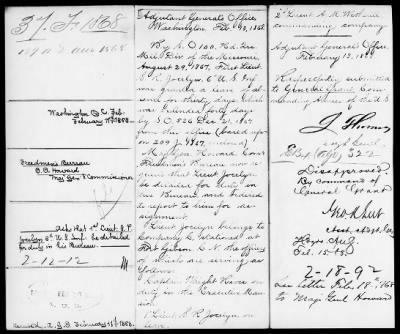 37. F. 1868
Washington D.C. Feb.
February 11th 1868.
Freedmen's Bureau
O. O. Howard
Maj. Gen. & Commissioner
Asks that 1st Lieut. S. P.
Jocelyn 6th U.S. Inf. be detailed
for duty in this Bureau
2-12-12
Adjutant General's Office
Washington, Feb. 13, 1868.
By S. O. 100. Hd. Qrs.
Mil. Div. of the Missouri,
August 29, 1867, First Lieut.
S. P. Jocelyn, 6" U.S. Inf
was granted a leave of ab-
sence for thirty days which
was extended forty days
by S.O. 526 Dec. 21, 1867
from this office (based up-
on 209 J. 1867, enclosed)
M. Gen. Howard Com'r
Freedmen's Bureau now re-
quests that Lieut. Jocelyn
be detailed for duty in
his Bureau and ordered
to report to him for as-
signment.
Lieut. Jocelyn belongs to
Company
stationed at
Fort Gibson C. N. the officers
of which are serving as
follows:
Captain
on
duty at the Executive Man-
sion.
1st Lieut. S. P. Jocelyn on
leave.
2d Lieut. A. M.
commanding company.
Adjutant General's Office,
February 13, 1868
Respectfully submitted
to General Grant Com-
manding Armies of the U.S.
L. Thomas
Adjt. Genl.
322
Disapproved.
By command of
General Grant
Geo. K. Leet
Asst. Adjt. Gen.
Hdqrs.
Feb. 15-68
2-18-92
See letter Feb. 18th 1868
to Maj. Genl. Howard